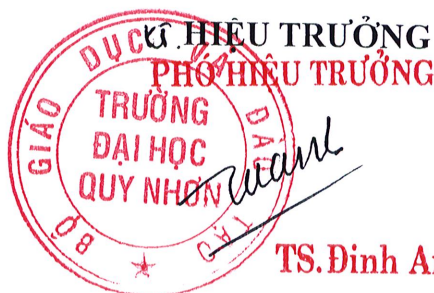 KT. HIỆU TRƯỞNG
PHÓ HIỆU TRƯỞNG
BỘ GIÁO DỤC VÀ ĐÀO TẠO
TRƯỜNG
ĐẠI HỌC
QUY NHƠN
TS. Đinh